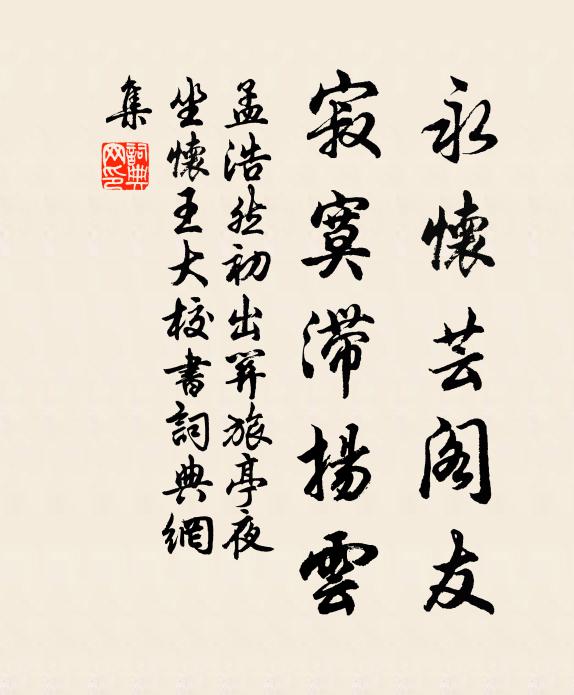 永懷芸阁友
寂寞滯揚雲
孟浩然初出関旅亭夜
坐懷王大校書詞典網
集
詞典
网印